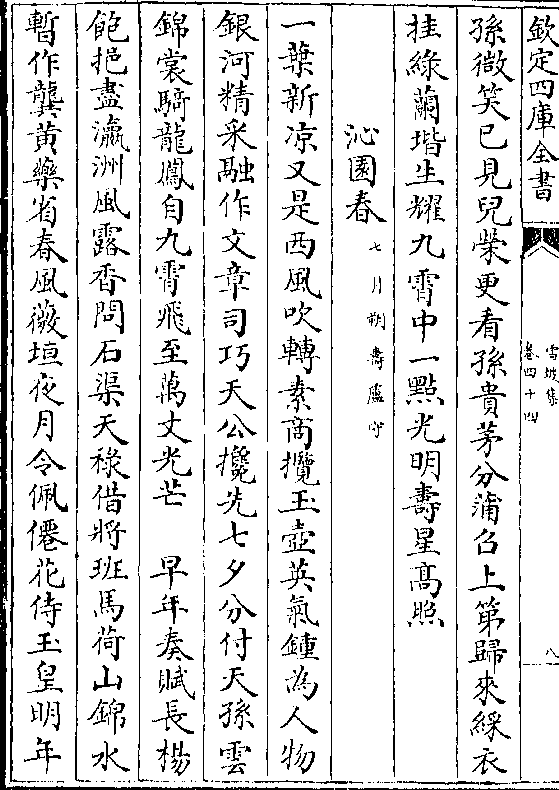 欽定四庫全書
雪坡集
卷四十四
八
孫微笑已見兒榮更看孫貴茅分蒲召上第歸來綵衣
挂綠蘭堦生耀九霄中一點光明壽星髙照
沁園春七月朔壽廬守
一葉新凉又是西風吹轉素商攬玉壺英氣鍾為人物
銀河精采融作文章司巧天公攙先七夕分付天孫雲
錦裳騎龍鳳自九霄飛至萬丈光芒　早年奏賦長楊
飽挹盡瀛洲風露香問石渠天祿借將班馬荷山錦水
暫作龔黄藥省春風薇垣夜月令佩僊花侍玉皇明年